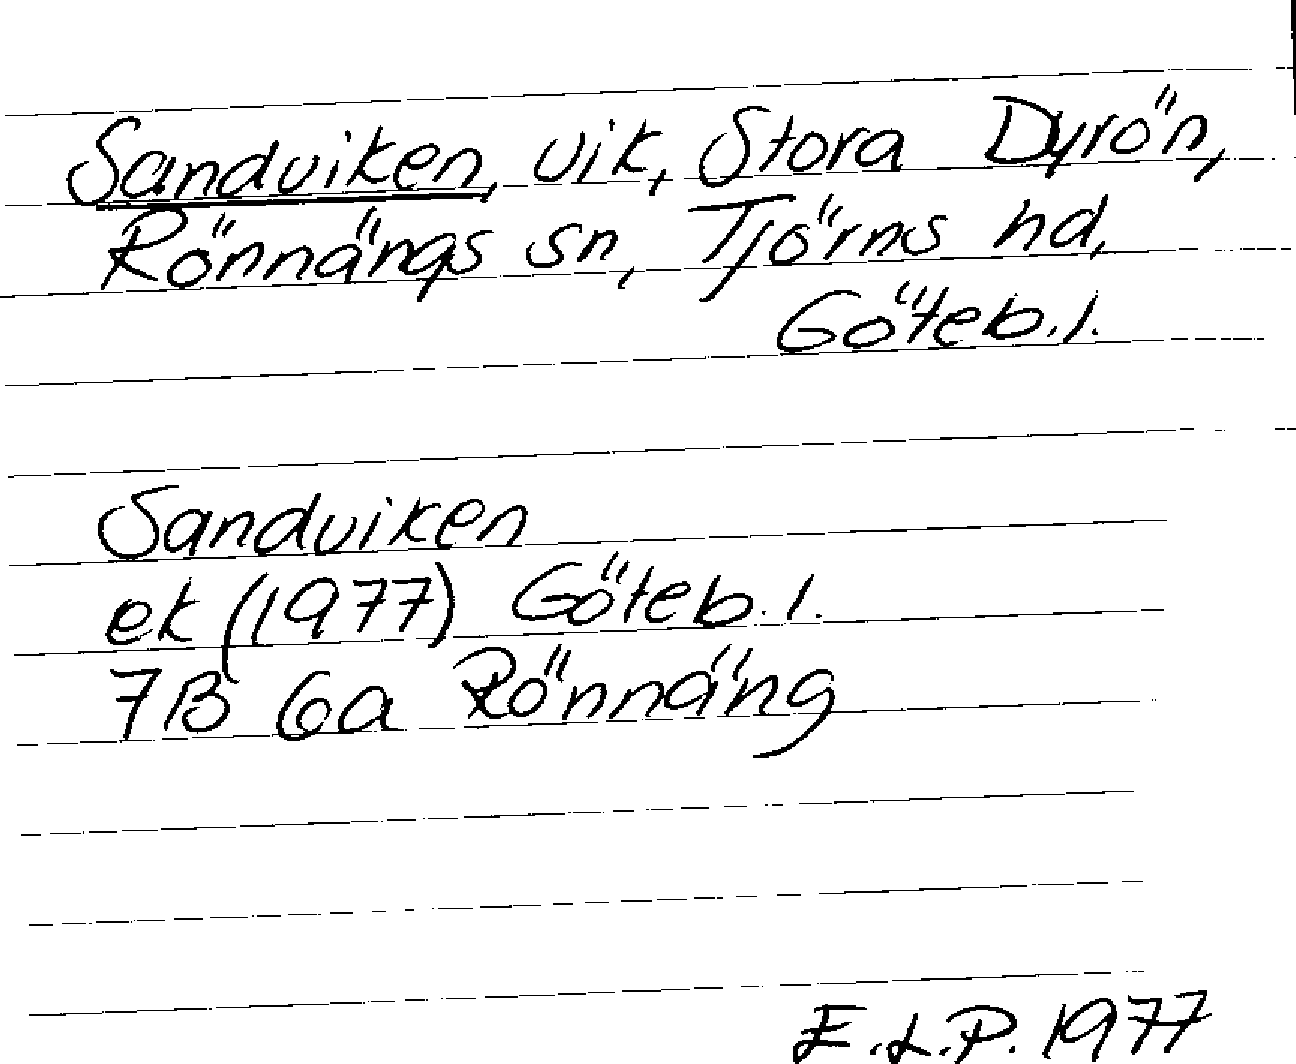 Sandviken, vik, Stora Dyrön,
Rönnängs sn, Tjörns hd,
Göteb. l.
Sandviken
ek (1977) Göteb. l.
7B 6a Rönnäng
E.L.P. 1977